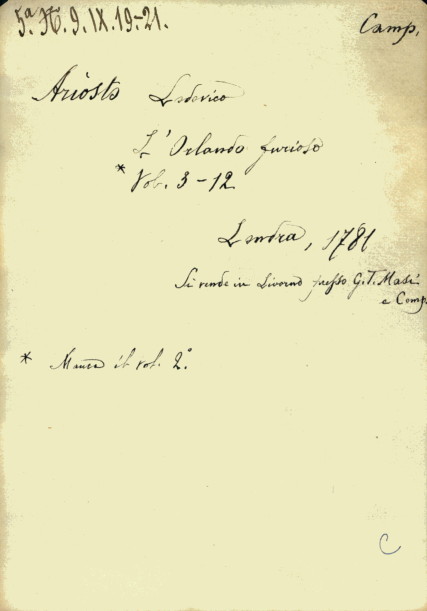 5.ª H. 9. IX. 19-21.
Camp.
Ariosto Lodovico
L'Orlando furioso
* Vol. 3-12
Londra, 1781
Si vende in Livorno presso G. T. Masi
e Comp.
* Manca il vol. 2.º
C